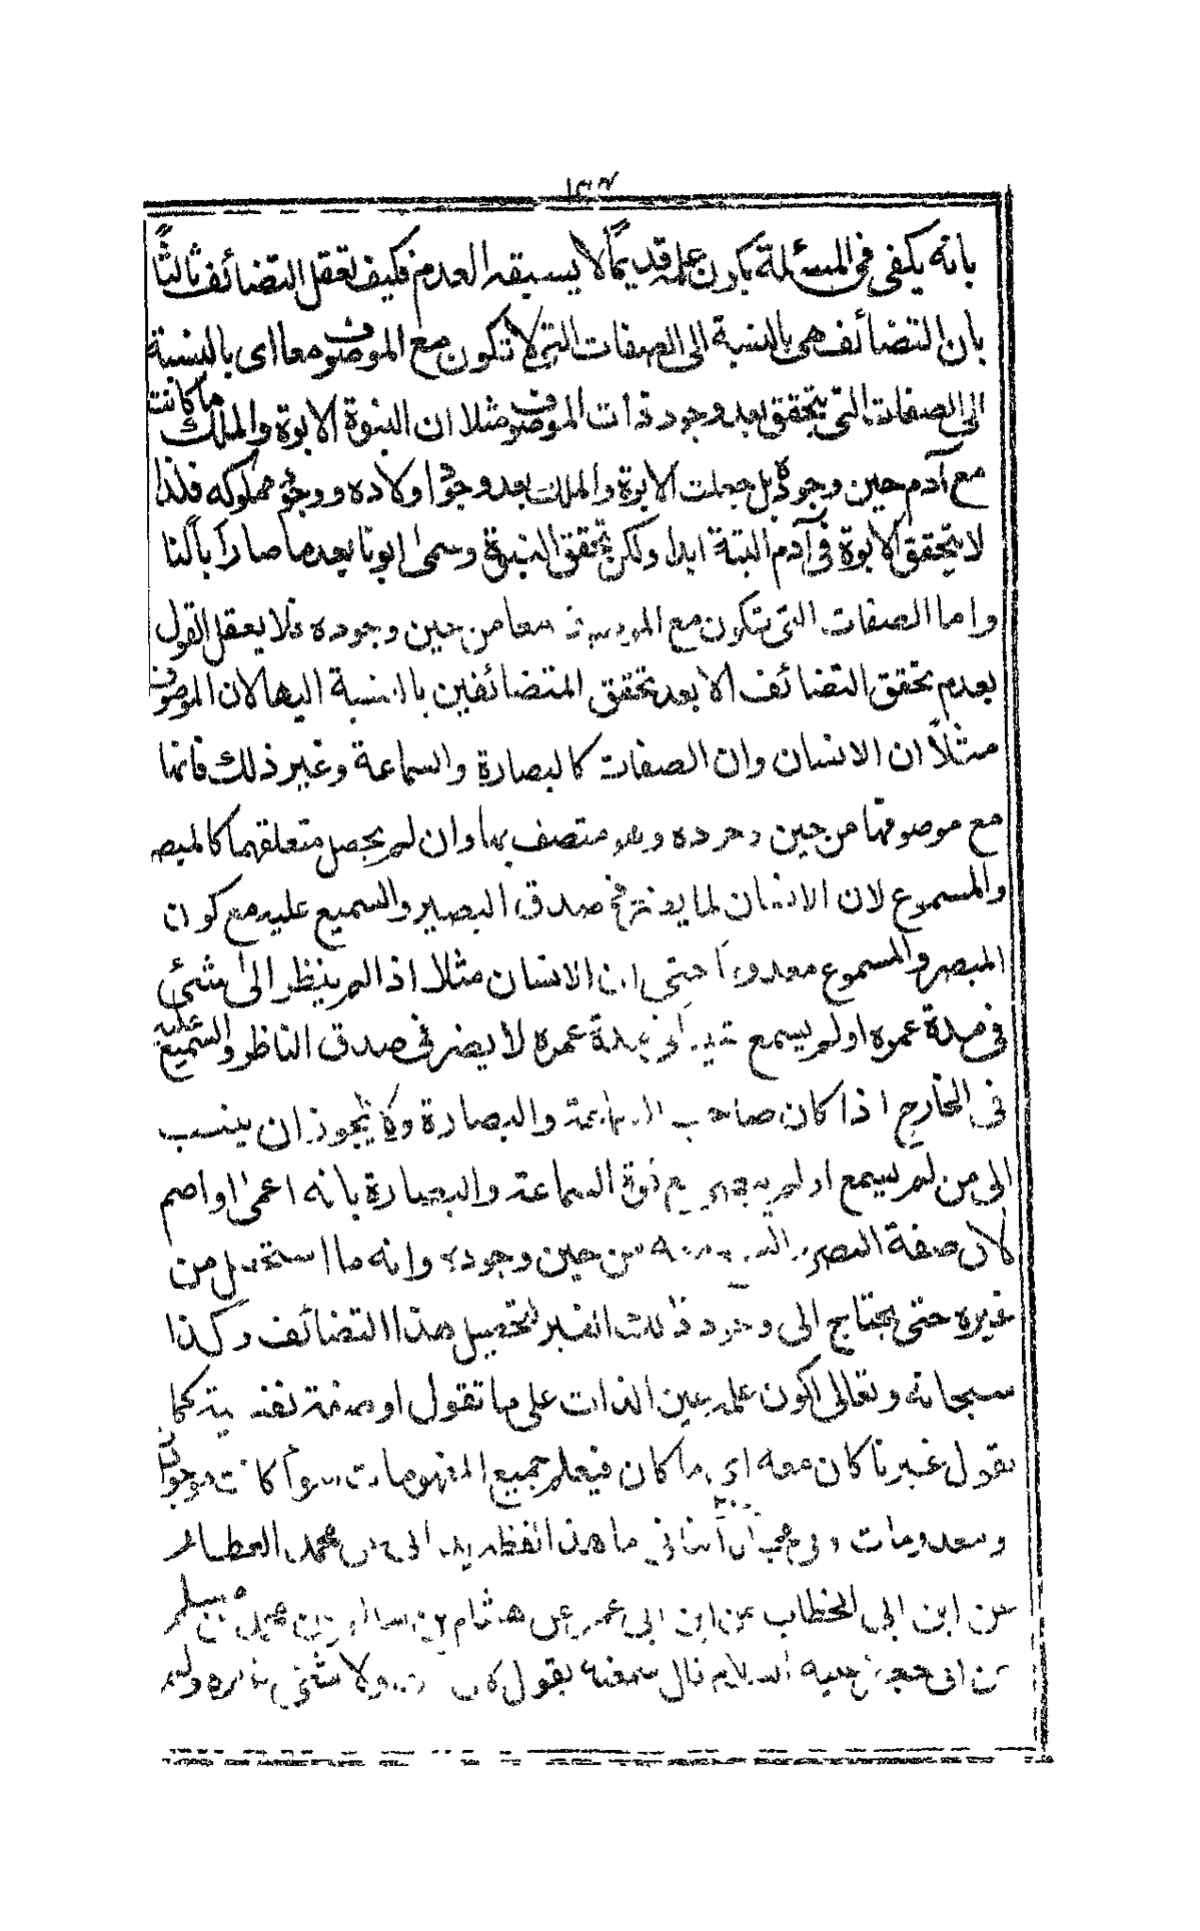 ١٣٧
بانه يكفى فى المسئلة بكون علمه قديمًا لا يسبقه العدم فكيف تعقل التضائف ثالثًا
بان التضائف هى بالنسبة الى الصفات التى لا تكون مع الموصوف معا اى بالنسبة
الى الصفات التى يتحقق بعد وجود ذات الموصوف مثلا ان البنوة الابوة والملك ما كانت
مع آدم حين وجوده بل جعلت الابوة والملك بعد وجود اولاده ووجود مملوكه فلذا
لا يتحقق الابوة فى آدم البتة ابدا ولكن تحقق النبوة وسمى ابونا بعد ما صار اباً لنا
واما الصفات التى يتكون مع الموصوف معا من حين وجوده فلا يعقل القول
بعدم تحقق التضائف الا بعد تحقق المتضائفين بالنسبة اليها لان الموصوف
مثلاً ان الانسان وان الصفات كالبصارة والسماعة وغير ذلك فانها
مع موصوفها من حين وجوده وهو متصف بها وان لم يحصل متعلقهما كالمبصر
والمسموع لان الانسان لما صدق البصير والسميع عليه مع كون
المبصر والمسموع معدوماً حتى ان الانسان مثلا اذا لم ينظر الى شئى
فى مدة عمره او لم يسمع شيئا فى مدة عمره لا يضر فى صدق الناظر والسميع عليه
فى الخارج اذا كان صاحب السامعة والبصارة ولا يجوز ان ينسب
الى من لم يسمع او لم يبصر مع قوة السماعة والبصارة بانه اعمى او اصم
لان صفة البصر من حين وجوده وانه ما استحصل من
غيره حتى يحتاج الى وجود ذلك الغير لتحصيل هذا التضائف وكذا
سبحانه وتعالى لكون علمه عين الذات على ما تقول او صفة نفسية كما
يقول غيرنا كان معه اى ما كان فيعلم جميع المفهومات سوأ كانت موجودات
ومعدومات وفى ما هذا لفظه محمد العطار
عن ابن ابى الخطاب عن ابن ابى عمير عن هشام بن سالم عن محمد بن مسلم
عن ابى جعفر عليه السلام قال سمعته يقول كان ولا شئى غيره ولم